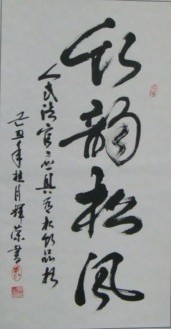 竹韵松风
人民法官应具有松竹品格
己丑年桂月辉荣书